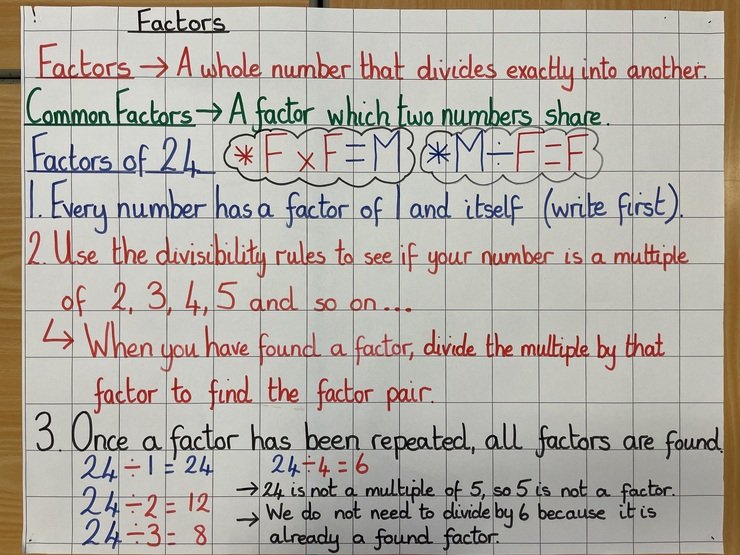 Factors
Factors → A whole number that divides exactly into another.
Common Factors → A factor which two numbers share.
Factors of 24 * F x F = M * M ÷ F = F
1. Every number has a factor of 1 and itself (write first).
2. Use the divisibility rules to see if your number is a multiple
of 2, 3, 4, 5 and so on...
↳ When you have found a factor, divide the multiple by that
factor to find the factor pair.
3. Once a factor has been repeated, all factors are found.
24 ÷ 1 = 24 24 ÷ 4 = 6
→ 24 is not a multiple of 5, so 5 is not a factor.
24 ÷ 2 = 12
→ We do not need to divide by 6 because it is
24 ÷ 3 = 8 already a found factor.